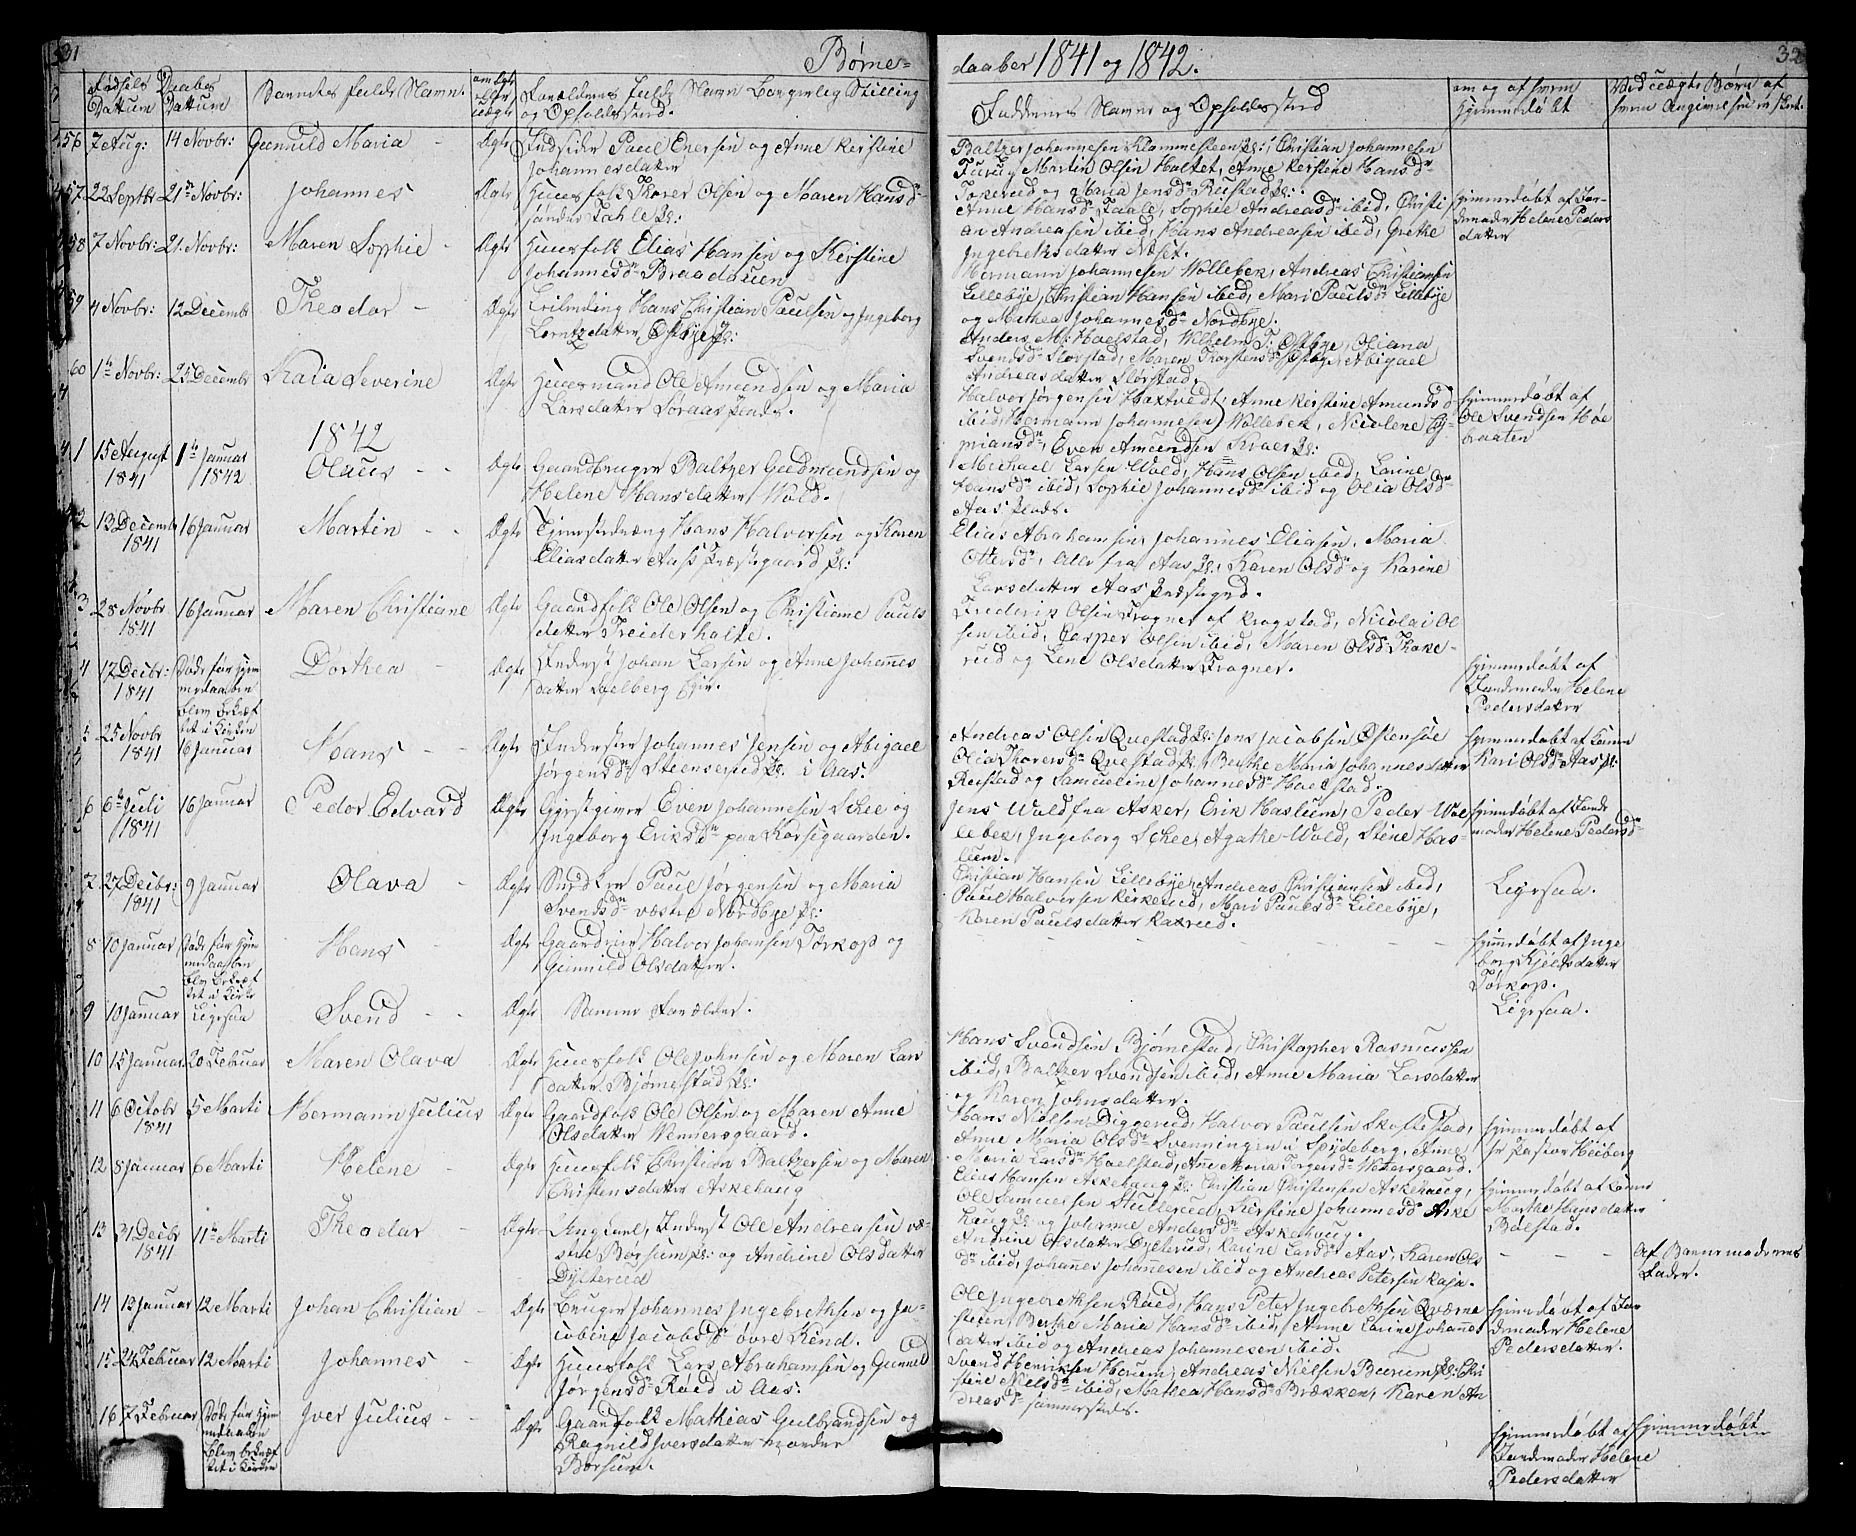 31
Børne-
daaber 1841 og 1842.
32
Fødsels Dattum
Daabes Dattum
Barnets fulde Navn.
om Ægte eller uægte
Forældrenes fulde Navn Borgerlig Stilling
og Opholdssted.
Faddernes Navne og Opholdssted
om og af hvem
hjemmedøbt
Ved uægte Børn af
hvem Angivelsen er skeet.
56 7 Aug: 14 Novbr: Gunnild Maria - Ægte
Inderster Paul Enersen og Anne Kirstine
Johannesdatter
Baltzer Johannesen Klommesteen Pl:, Christian Johannesen
Furug Martin Olsen Holtet, Anne Kirstine Hansd:
Torkerud og Maria Jensd: Reistad Pl:.
57 22 Septbr 21 Novbr: Johannes Ægte
Huusfolk Thorer Olsen og Maren Hansd:
søndre Fahle Pl:
Anne Hansd: Faale, Sophie Andreasd: ibid, Christi
an Andreasen ibid, Hans Andreasen ibid, Grethe
Ingebretsdatter Næset.
hjemmedøbt af Jor-
demoder Helene Peders
datter
58 7 Novbr: 21. Novbr: Maren Sophie - Ægte
Huusfolk Elias Hansen og Kirstine
Johannesd: Braadauen
Hermann Johannesen Wollebek, Andreas Christiansen
Lillebye, Christian Hansen ibid, Mari Paulsd: Lillebye
og Mathea Johannesd: Nordbye.
59 4 Novbr: 12 Decembr Theodor - Ægte
Hans Christian Paulsen og Ingeborg
Lorntzdatter Østbye Pl:
Anders M: Hoelstad, Wilhelm T: Østbye, Oliana
Svendsd: Slorstad, Maren Thorstensd: Østbye, Abigael
Andreasdatter Slørstad.
60 1te Novbr: 25 Decembr Kaia Severine Ægte
Huusmand Ole Amundsen og Maria
Larsdatter Soraas Plads.
Halvor Jørgensen Haxtvedt, Anne Kirstine Amundsd:
ibid, Hermann Johannesen Wollebek, Nicolene Cy-
priansd:, Even Amundsen Kraer Pl:
hjemmedøbt af
Ole Svendsen Høe
braaten
1842
1 15 August 1841 1te Januar 1842 Olaus - - Ægte
Gaardbruger Baltzer Gudmundsen og
Helene Hansdatter Wold.
Michael Larsen Wold, Hans Olsen ibid, Karine
Hansd: ibid, Sophie Johannesd: ibid og Olia Olsd:
Aas Plads.
2 13 Decembr 1841 16 Januar Martin - - Ægte
Tjenestedræng Hans Halvorsen og Karen
Eliasdatter Aas Præstegaard Pl:
Elias Abrahamsen, Johannes Eliasen, Maria
Ottersd:, Alle fra Aas Pl:, Karen Olsd: og Karine
Larsdatter Aas Præstegrd.
3 28 Novbr 1841 16 Januar Maren Christiane Ægte
Gaardfolk Ole Olsen og Christiane Pauls
datter Freiderholte.
Frederik Olsen Frogner af Krogstad, Nicolai Ol
sen ibid, Casper Olsen ibid, Maren Olsd: Thake-
rud og Lene Olsdatter Frogner.
4 12 Decbr: 1841 Døde før Hjem
medaaben
blev bekræf
tet i Kirken
Dorthea - Ægte
Inderst Johan Larsen og Anne Johannes
datter Solberg Eier.
hjemmedøbt af
Jordemoder Helene
Pedersdatter
5 25 Novbr 1841 16 Januar Hans - - Ægte
Inderster Johannes Jensen og Abigael
Jørgensd: Steenserud Pl: i Aas.
Andreas Olsen Qvestad Pl:, Jens Jacobsen Østensøe
Olia Thorersd: Qvestad Pl, Berthe Maria Johannesdatter
Reistad og Samueline Johannesd: Hoelstad.
hjemmedøbt af Konen
Kari Olsd: Aas Pl:
6 6te Juli 1841 16 Januar Peder Edvard Ægte
Gjæstgiver Even Johannesen Schee og
Ingeborg Eriksd: paa Korsegaarden.
Jens Wold fra Asker, Erik Haslum, Peder Wol
lebek, Ingeborg Schee, Agathe Wold, Stene Has-
lum.
hjemmedøbt af Jorde
moder Helene Pedersd:
7 27 Decbr: 1841 9 Januar Olava - Ægte
Paul Jørgensen og Maria
Svendsd: vestre Nordbye Pl:
Christian Hansen Lillebye, Andreas Christiansen ibid,
Paul Halvorsen Kirkerud, Mari Paulsd: Lillebye,
Karen Paulsdatter Kaxrud.
Ligesaa.
8 10 Januar Døde før Hjem
medaaben
blev bekræf
tet i Kirke
Hans - Ægte
Gaardeier Halvor Johansen Torkop og
Gunnild Olsdatter.
hjemmedøbt af Inge
borg Kjeldsdatter
Torkop.
9 10 Januar Ligesaa Svend - - Ægte
Samme Forældre.
Ligesaa.
10 15 Januar 20 Februar Maren Olava Ægte
Huusfolk Ole Johnsen og Maren Lars
datter Bjørnestad Pl:
Hans Svendsen Bjørnestad, Christopher Rasmussen
ibid, Baltzer Svendsen ibid, Anne Maria Larsdatter
og Karen Johnsdatter.
11 6 Octobr 1841 5 Marti Hermann Julius Ægte
Gaardfolk Ole Olsen og Maren Anne
Olsdatter Wennersgaard.
Hans Nielsen Diggerud, Halvor Paulsen Skoftestad,
Anne Maria Olsd: Svenningen i Spydeberg, Anne
Maria Larsd: Hoelstad, Anne Maria Torgersd: Wetersgaard.
hjemmedøbt af
Hr Pastor Heiberg
12 8 Januar 6 Marti Helene - Ægte
Huusfolk Christian Baltzersen og Maren
Christensdatter Askehaug
Elias Hansen Askehaug Pl:, Christian Christensen Askehaug,
Ole Samuelsen Stullerud, Kirstine Johannesd: Aske
haug Pl: og Johanne Andersd: Askehaug.
hjemmedøbt af Konen
Marthe Hansdatter
Bølstad.
13 31 Decbr 1841 11te Marti Theodor - Ægte
Ungkarl, Inderst Ole Andreasen ve-
stre Borsum Pl: og Andrine Olsdatter
Dysterud
Andrine Olsdatter Dysterud, Karine Larsd: Aas, Karen Ols
d: ibid, Johannes Johannesen ibid og Andreas Petersen Kaja.
Af Barnemoderens
Fader.
14 13 Januar 12 Marti Johan Christian - Ægte
Bruger Johannes Ingebrethsen og Ja-
cobine Jacobsd: øvre Kind.
Ole Ingebrethsen Roed, Hans Peter Ingebrethsen Qværne
steen, Berthe Maria Hansd: ibid, Anne Karine Johannes
datter ibid og Andreas Johannesen ibid.
hjemmedøbt af Jor
demoder Helene
Pedersdatter.
15 24 Februar 12 Marti Johannes - Ægte
Huusfolk Lars Abrahamsen og Gunild
Jørgensd: Roed i Aas.
Svend Henriksen Horum, Andreas Nielsen Burum Pl: Chri
stine Nielsd: ibid, Mathea Hansd: Brækken, Karen An
dreasd: Sunnersteds.
16 7 Februar Døde før Hjem
medaaben
blev bekræf
tet i Kirken
Iver Julius - - Ægte
Gaardfolk Mathias Gulbrandsen og
Ragnild Iversdatter nordre
Borsum.
hjemmedøbt af
Jordemoder Helene
Pedersdatter
hjemmedøbt